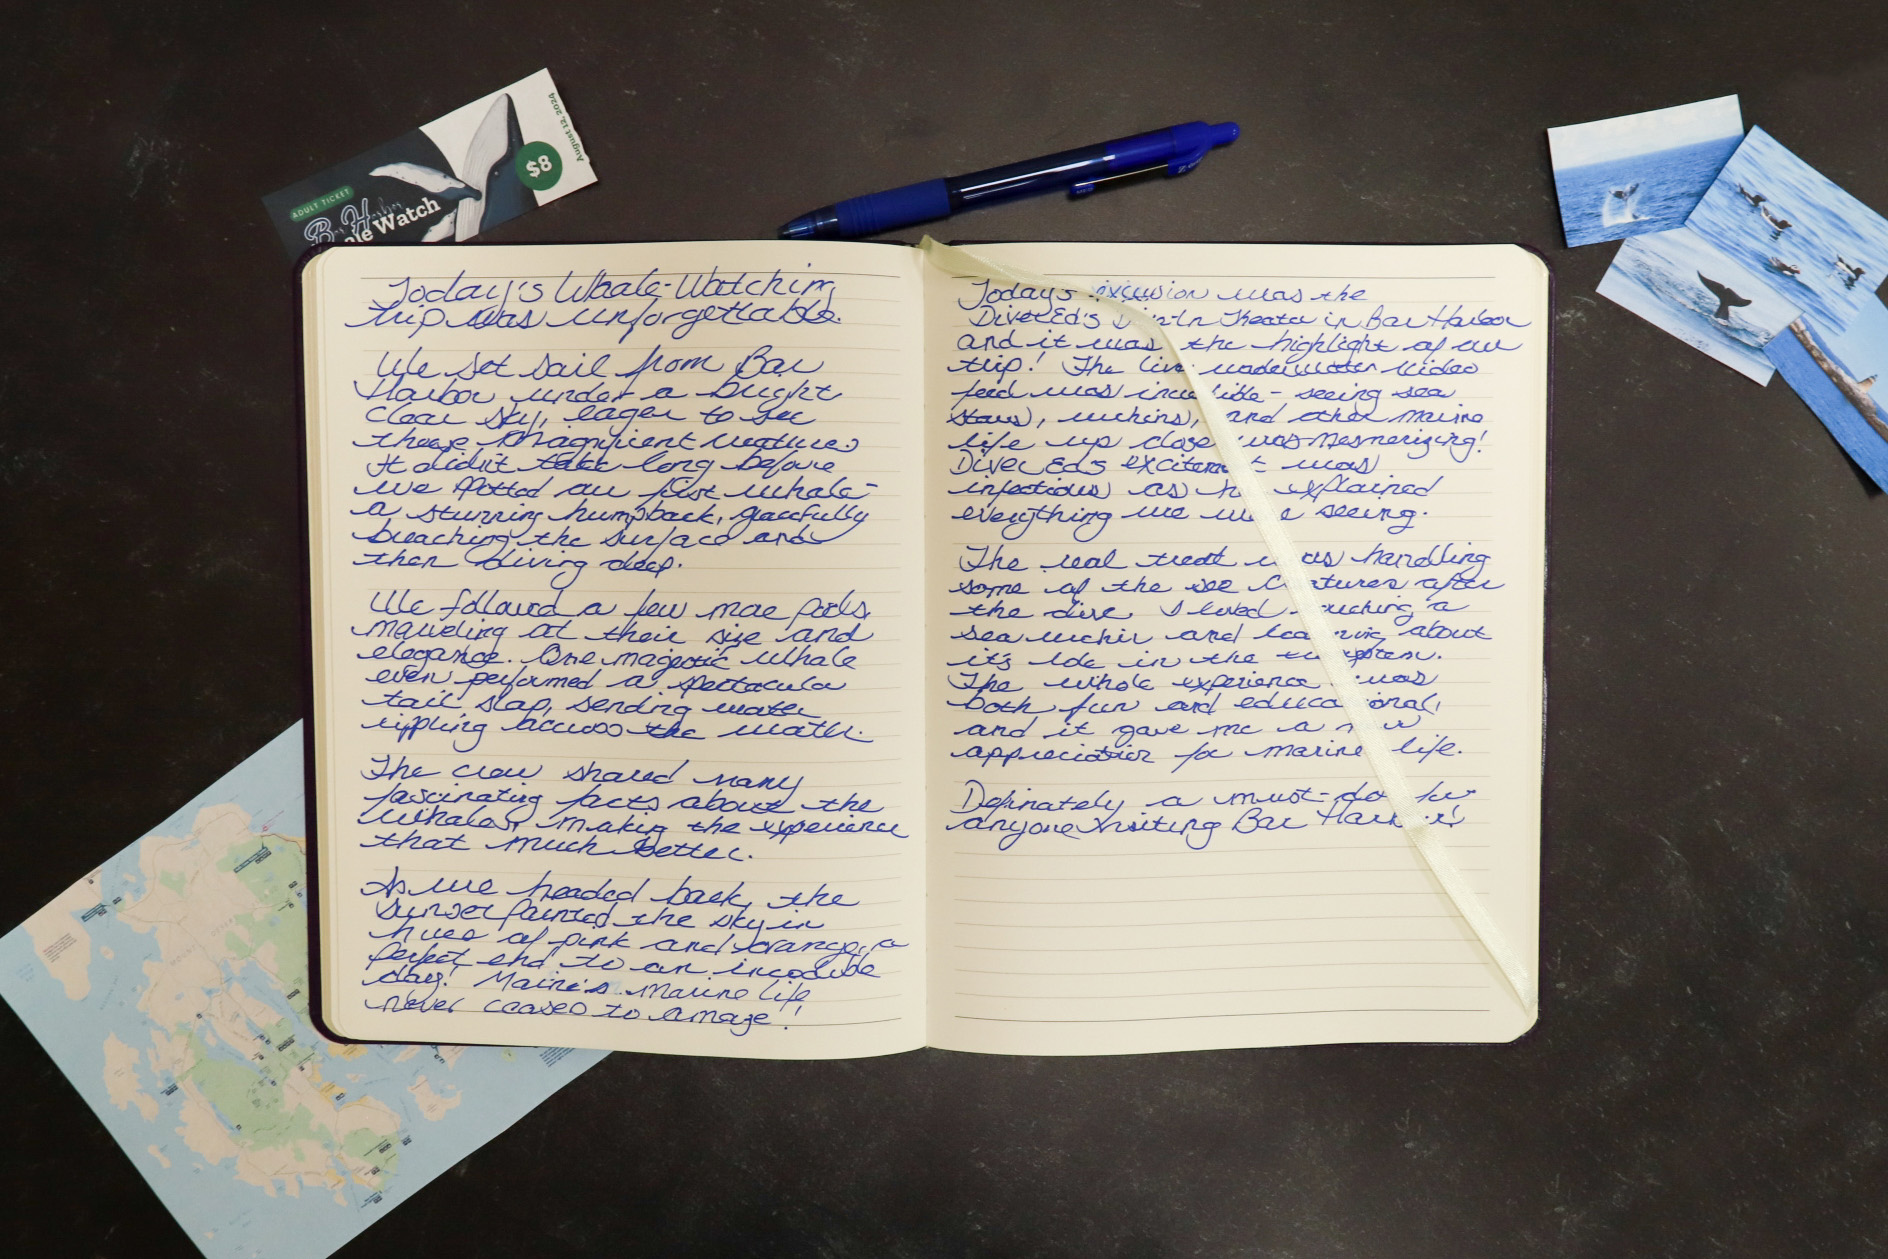 ADULT TICKET
Bar Harbor
Whale Watch
$8
August 12, 2024
Today's Whale-Watching
trip was unforgettable.
We set sail from Bar
Harbor under a bright
clear sky, eager to see
these magnificent creatures
It didn't take long before
we spotted our first whale-
a stunning humpback, gracefully
breaching the surface and
then diving deep.
We followed a few more pods,
marveling at their size and
elegance. One majestic whale
even performed a spectacular
tail slap, sending water
rippling across the water.
The crew shared many
fascinating facts about the
whales, making the experience
that much better.
As we headed back, the
sunset painted the sky in
hues of pink and orange, a
perfect end to an incredible
day! Maine's marine life
never ceases to amaze!!
Today's excursion was the
Diver Ed's Dive-In Theater in Bar Harbor
and it was the highlight of our
trip! The live underwater video
feed was incredible - seeing sea
stars, urchins, and other marine
life up close was mesmerizing!
Diver Ed's excitement was
infectious as he explained
everything we were seeing.
The real treat was handling
some of the sea creatures after
the dive. I loved touching a
sea urchin and learning about
it's role in the ecosystem.
The whole experience was
both fun and educational,
and it gave me a new
appreciation for marine life.
Definately a must-do for
anyone visiting Bar Harbor!